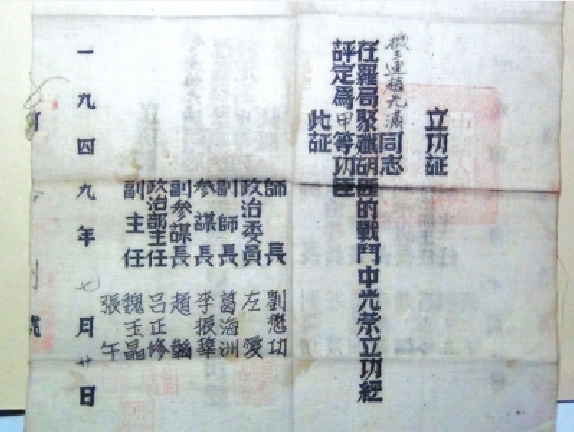 立功証
連趙光滿同志
在羅局聚殲胡匪的戰鬥中光荣立功經
評定爲甲等功臣
此証
師長 劉懋功
政治委員 左愛
副師長 葛海洲
參謀長 李振華
副參謀長 趙
政治部主任 呂正修
副主任 魏玉晶
張午
一九四九年七月廿日